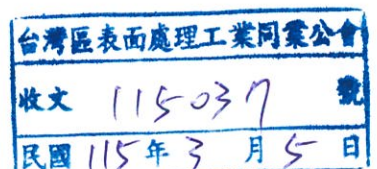 台灣區表面處理工業同業公會
收文 115037 號
民國 115 年 3 月 5 日